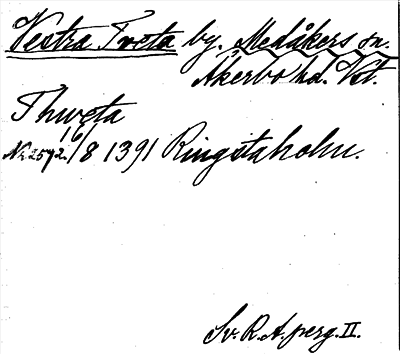 Vestra Tveta by. Medåkers sn.
Åkerbo hd. Vst.
Thweta
Nr 2572. 16/8 1391 Ringstaholm.
Sv. R. A. perg. II.